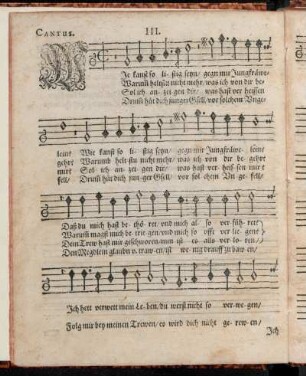 CANTUS. III.
Je kanst so li- stig seyn/ gegn mir Jungfräwe-
Warumb helstu nicht mehr, was ich von dir be-
Sol ich an- zei- gen dir/ was hast vor heissen
Drumb hüt dich junger Gsell, vor solchem Unge-
lein: Wie kanst so li- stig seyn/ gegn mir Jungfräwe- leine
gehrt Warumb helt stu nicht mehr/ was ich von dir be- gehrt
mir Sol ich an- zei- gen dir/ was hast ver- heis- sen mir
fell/ Drumb hüt dich jun- ger Gsell/ vor sol chem Un ge fell/
Daß du mich hast be- thö- ret/ vnd mich al- so ver- füh- ret:
Warumb magst mich be- trie- gen/ vnd mich so ver lie- gene
Dein Trew hast mir geschworen/ nun ist es alls ver- lo- ren/
Den Megdlein glaub vn traw en/ ist we- nig drauff zu baw en/
Ich hett vertwet mein Le- ben/ du werst nicht so ver- wegen/
Folg mir bey meinen Trewen/ es wird dich nicht ge- rew- en/
Ich